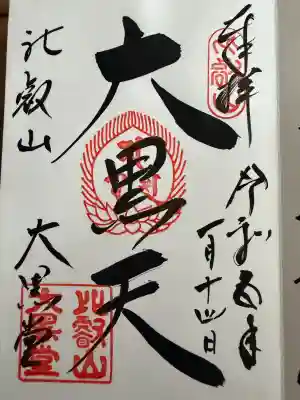 奉拝
令和四年
一月十四日
大黒天
比叡山
大黒堂
比叡山
大黒堂